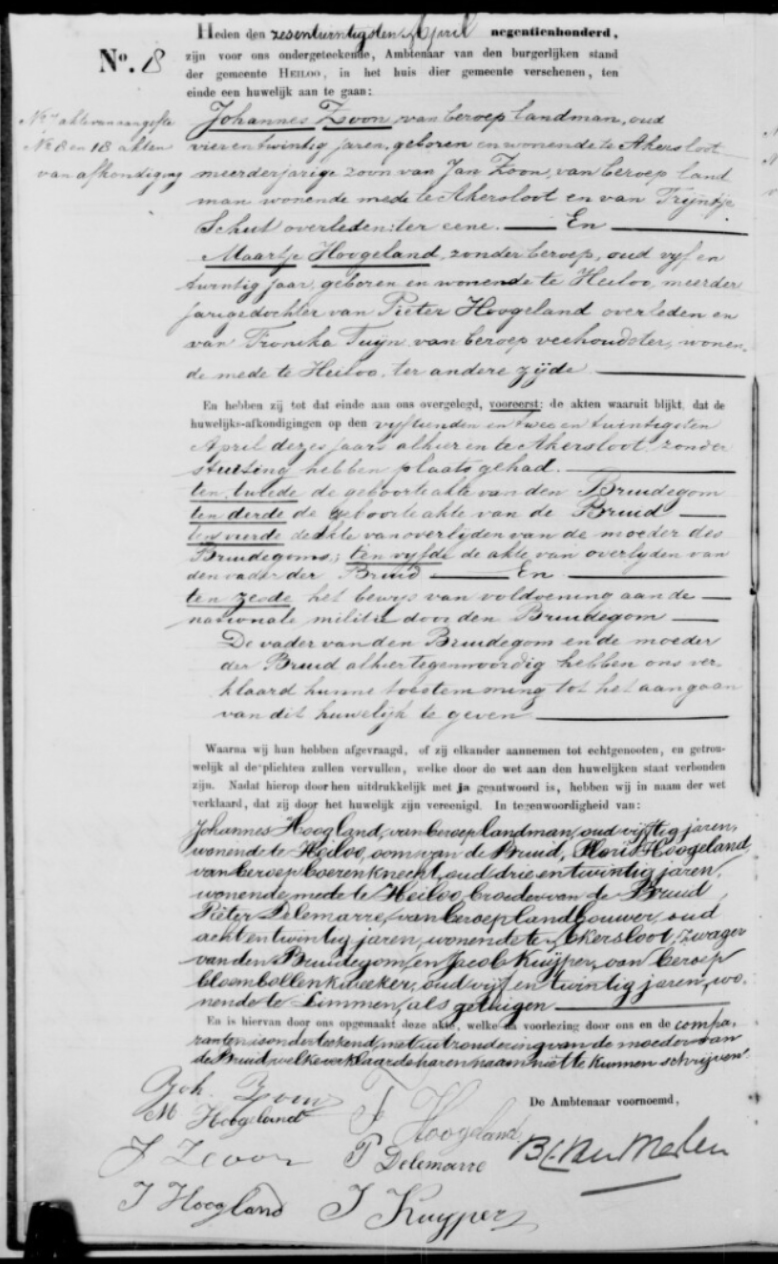 Heden den zesentwintigsten April negentienhonderd,
No. 8
zijn voor ons ondergeteekende, Ambtenaar van den burgerlijken stand
der gemeente HEILOO, in het huis dier gemeente verschenen, ten
einde een huwelijk aan te gaan:
No 8 en 18 akten
van afkondiging
Johannes Zoon, van beroep landman, oud
vierentwintig jaren, geboren en wonende te Akersloot
meerderjarige zoon van Jan Zoon, van beroep land
man wonende mede te Akersloot en van Trijntje
Schut overleden: ter eene. En
Maartje Hoogeland, zonder beroep, oud vijf en
twintig jaar, geboren en wonende te Heiloo, meerder
jarige dochter van Pieter Hoogeland overleden en
van Tuijn van beroep veehoudster, wonen
de mede te Heiloo, ter andere zijde
En hebben zij tot dat einde aan ons overgelegd, vooreerst: de akten waaruit blijkt, dat de
huwelijks-afkondigingen op den vijftienden en twee en twintigsten
April dezes jaars alhier en te Akersloot, zonder
stuiting hebben plaats gehad.
ten tweede de geboorteakte van den Bruidegom
ten derde de geboorteakte van de Bruid
ten vierde de akte van overlyden van de moeder des
Bruidegoms; ten vyfde de akte van overlyden van
den vader der Bruid En
ten zesde het bewys van voldoening aan de
nationale militie door den Bruidegom
De vader van den Bruidegom en de moeder
der Bruid alhier tegenwoordig hebben ons ver
klaard hunne toestemming tot het aangaan
van dit huwelijk te geven
Waarna wij hun hebben afgevraagd, of zij elkander aannemen tot echtgenooten, en getrou-
welijk al de plichten zullen vervullen, welke door de wet aan den huwelijken staat verbonden
zijn. Nadat hierop door hen uitdrukkelijk met ja geantwoord is, hebben wij in naam der wet
verklaard, dat zij door het huwelijk zijn vereenigd. In tegenwoordigheid van:
Johannes Hoogland, van beroep landman, oud vijftig jaren,
wonende te Heiloo, oom van de Bruid, Floris Hoogeland,
van beroep boerenknecht, oud drie en twintig jaren,
wonende mede te Heiloo, broeder van de Bruid,
Pieter Delemarre, van beroep landbouwer, oud
acht en twintig jaren, wonende te Akersloot, zwager
van den Bruidegom, en Jacob Kuijper, van beroep
bloembollenkweeker, oud vijf en twintig jaren, wo-
nende te Limmen, als getuigen
En is hiervan door ons opgemaakt deze akte, welke na voorlezing door ons en de compa-
ranten is onderteekend, met uitzondering van de moeder van
de Bruid, welke verklaarde haren naam niet te kunnen schrijven.
Joh. Zoon
M Hoogland
F Hoogeland
De Ambtenaar voornoemd,
J Zoon
P Delemarre
J Hoogland
J Kuyper